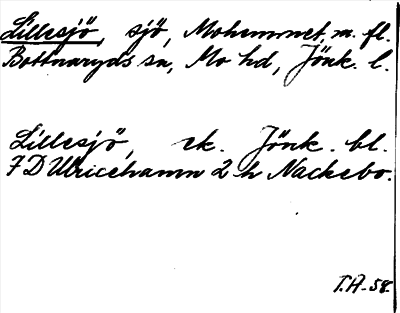 Lillesjö, sjö, Mohemmet, m. fl.
Bottnaryds sn, Mo hd, Jönk. l.
Lillesjö, ek. Jönk. bl.
7 D Ulricehamn 2 h Nackebo.
T.A-58.